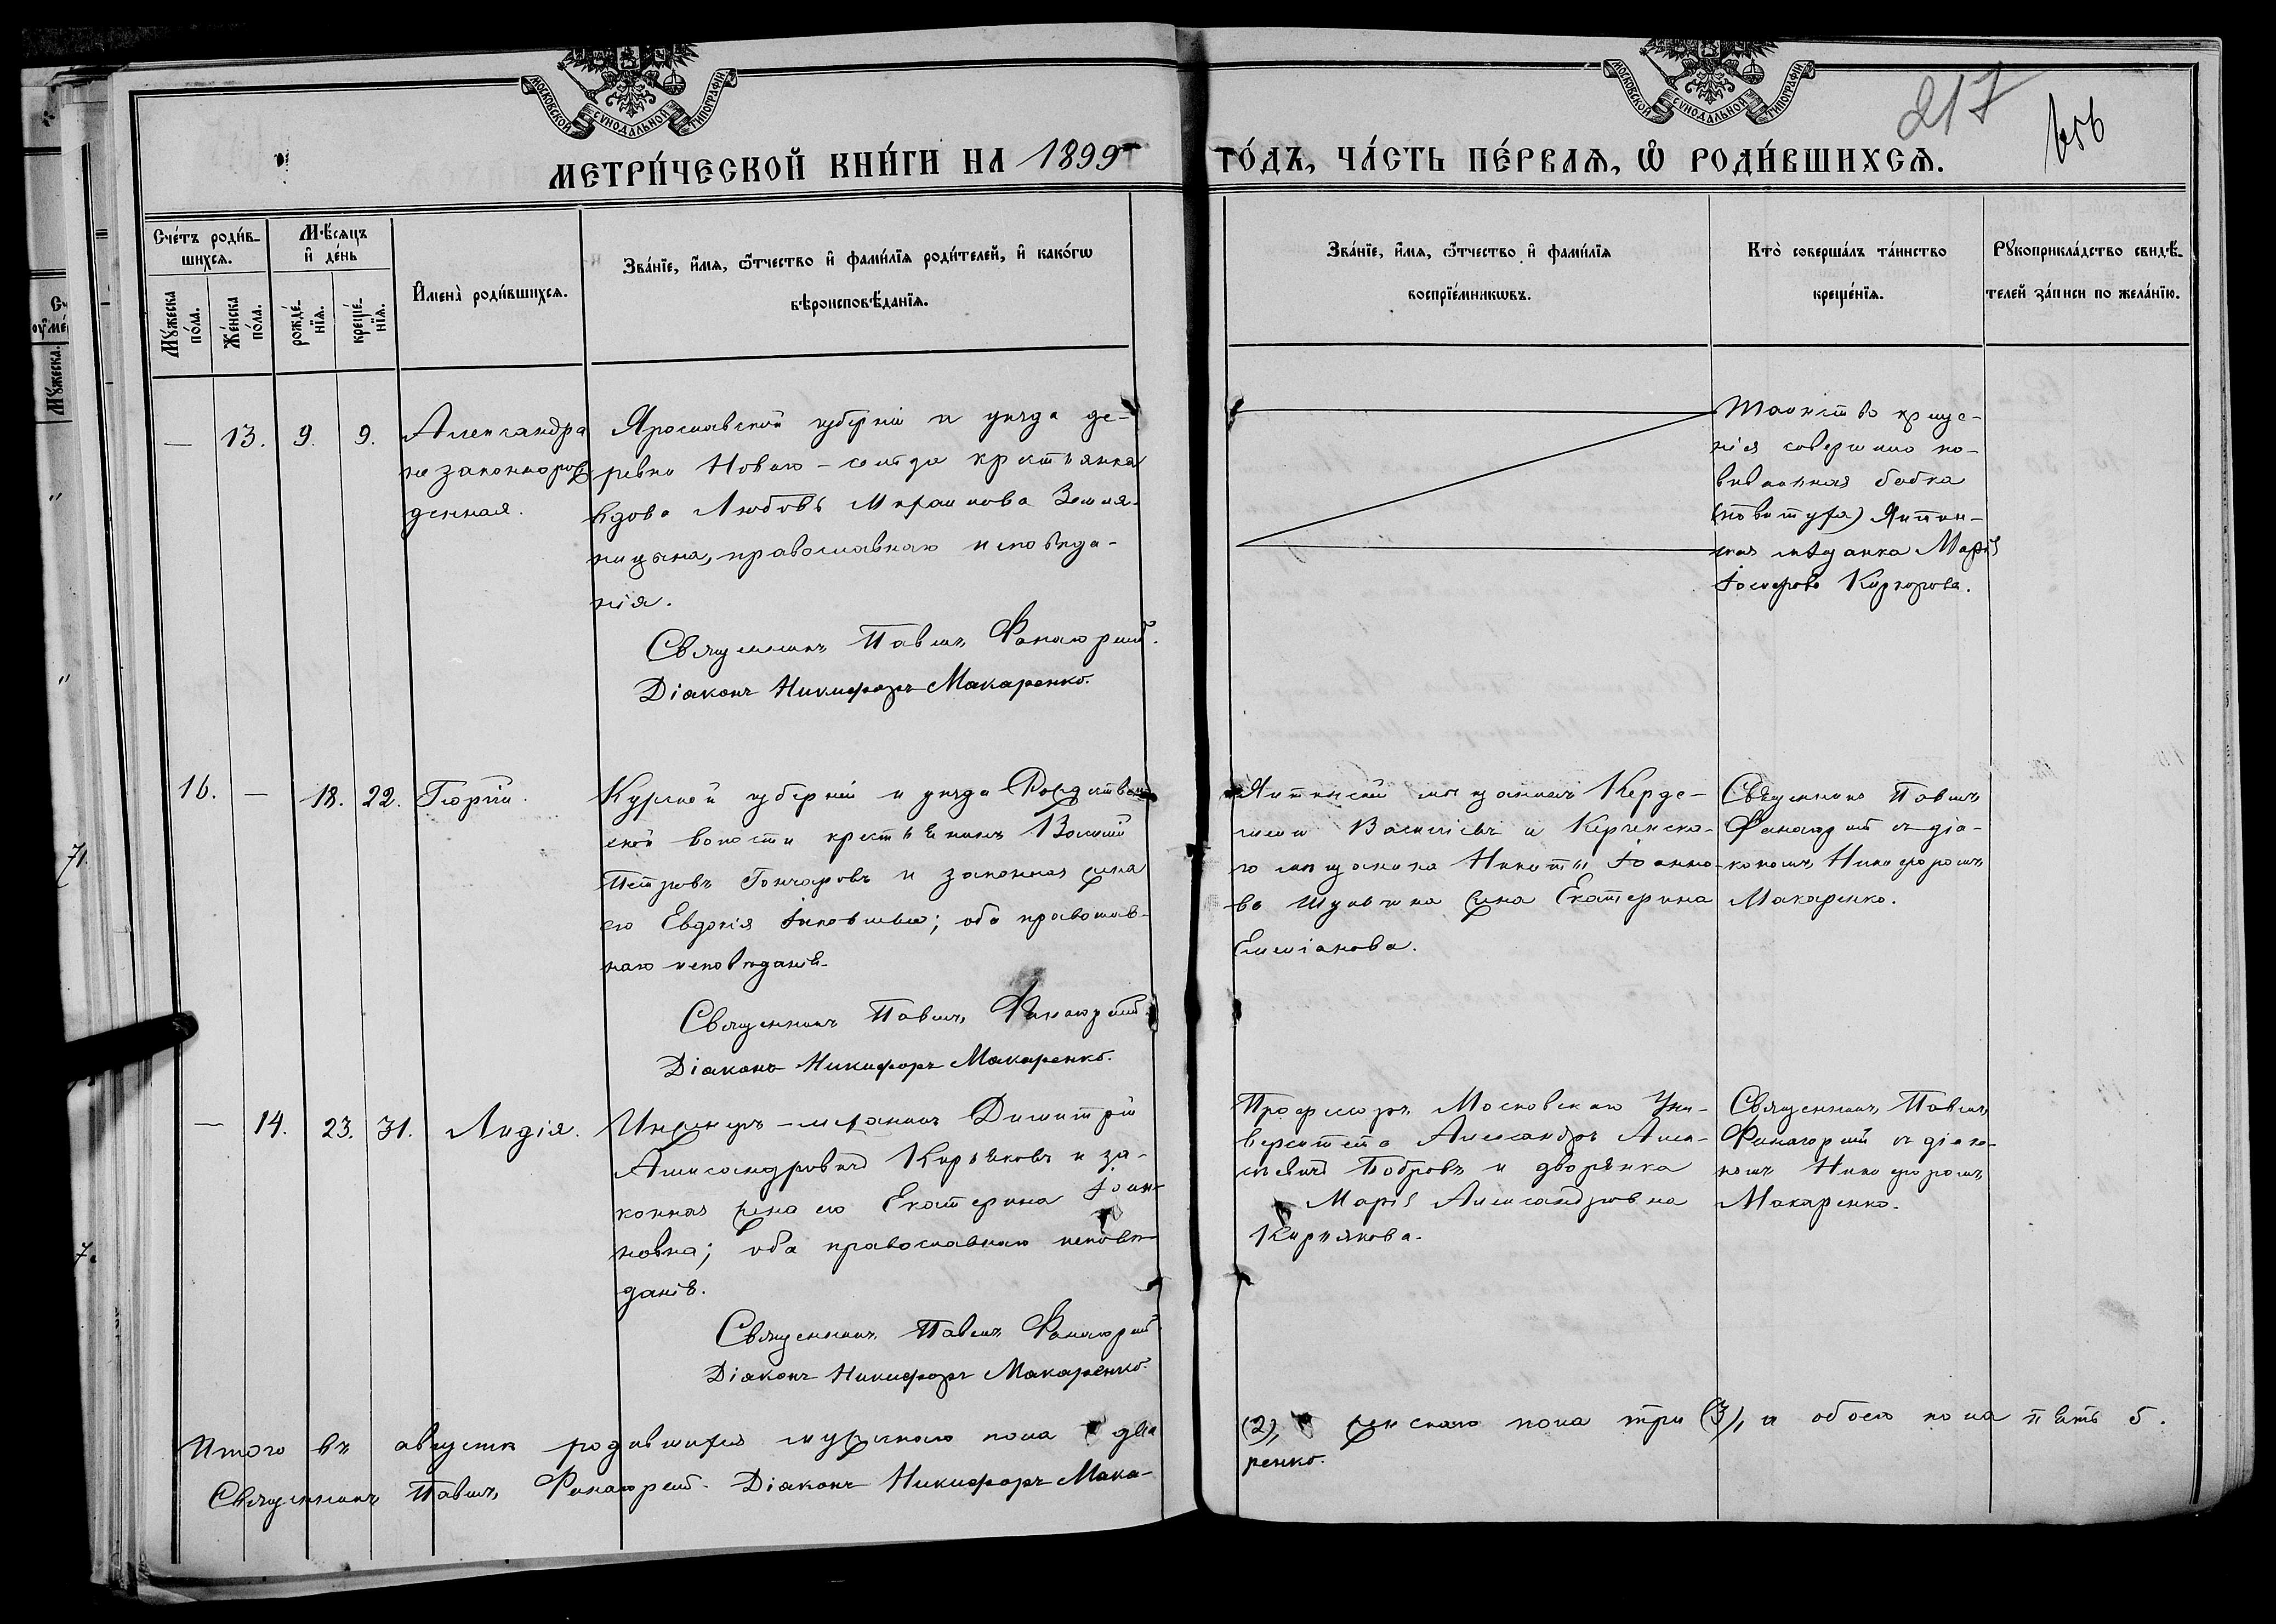 МОСКОВСКОЙ СУНОДАЛЬНОЙ ТИПОГРАФІИ
МОСКОВСКОЙ СУНОДАЛЬНОЙ ТИПОГРАФІИ
217
МЕТРИ́ЧЕСКОЙ КНИ́ГИ НА 1899 ГО́ДЪ, ЧА́СТЬ ПЕ́РВАѦ, Ѡ РОДИ́ВШИХСѦ.
Сче́тъ роди́в-
шихсѧ.
Мꙋ́жеска
по́ла.
Же́нска
по́ла.
Мѣ́сѧцъ
и де́нь
рожде́-
нїѧ.
креще́-
нїѧ.
Имена̀ роди́вшихсѧ.
Зва́нїе, и́мѧ, ѻ́тчество и фами́лїѧ роди́телей, и како́гѡ
вѣроисповѣ́данїѧ.
Зва́нїе, и́мѧ, ѻ́тчество и фами́лїѧ
воспрїе́мникѡвъ.
Кто̀ соверша́лъ та́инство
креще́нїѧ.
Рꙋкоприкла́дство свидѣ́-
телей за́писи по жела́нїю.
— 13. 9. 9.
Александра
незаконнорож
денная.
Ярославской губерніи и уѣзда де-
ревни Новаго-села крестьянка
вдова Любовь
православнаго исповѣда-
нія.
Священникъ Павелъ
Діаконъ Никифоръ Макаренко.
Таинство креще-
нія совершено по-
вивальная бабка
Ялтин-
ская мѣщанка Марія
Іосифова
16. — 18. 22. Георгій.
Курской губерніи и уѣзда Рождествен
ской волости крестьянинъ Василій
Петровъ Гончаровъ и законная жена
его Евдокія Іаковлева; оба православ-
наго исповѣданія.
Священникъ Павелъ
Діаконъ Никифоръ Макаренко.
Ялтинскій мѣщанинъ
Василіевъ и Керченска-
го мѣщанина Никиты Іоанно-
ва жена Екатерина
Емиліанова.
Священникъ Павелъ
съ діа-
кономъ Никифоромъ
Макаренко.
— 14. 23. 31. Лидія.
Инженеръ-механикъ Димитрій
Александровичъ Кирьяковъ и за-
конная жена его Екатерина Іоан-
новна; оба православнаго исповѣ-
данія.
Священникъ Павелъ
Діаконъ Никифоръ Макаренко.
Профессоръ Московскаго Уни-
верситета Александръ Алек-
сѣевичъ Бобровъ и дворянка
Марія Александровна
Кирьякова.
Священникъ Павелъ
съ діако-
номъ Никифоромъ
Макаренко.
Итого въ августѣ родившихся мужескаго пола два (2), женскаго пола три (3), а обоего пола пять 5.
Священникъ Павелъ Діаконъ Никифоръ Мака-
ренко.